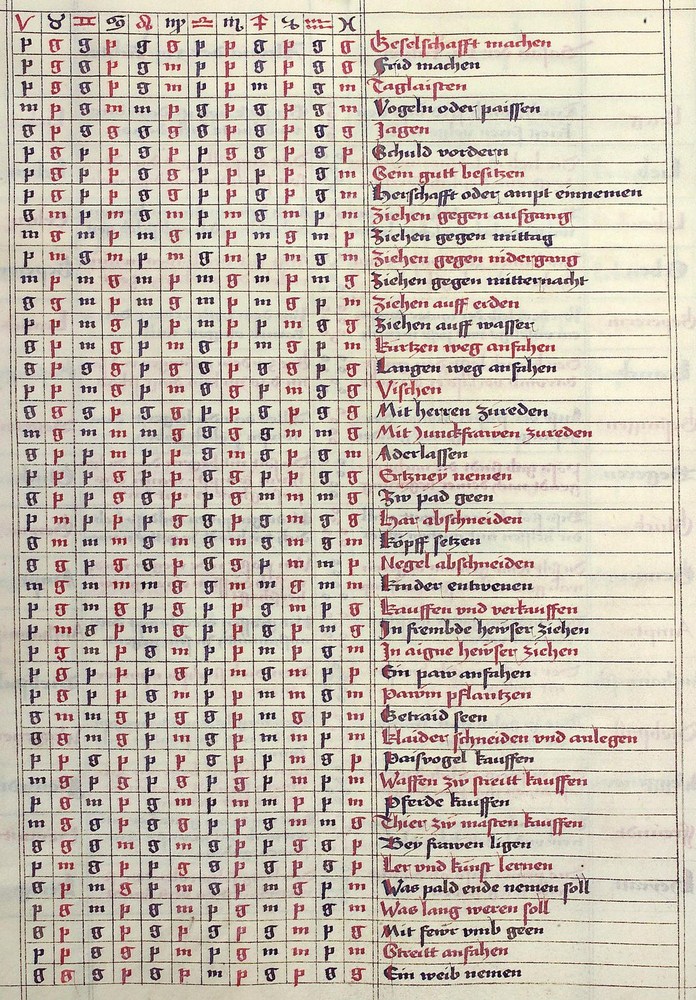 ♈ ♉ ♊ ♋ ♌ ♍ ♎ ♏ ♐ ♑ ♒ ♓
p g g p g g p p g p g g Geselschafft machen
p g g p g m p p g p g g Frid machen
g p g p g m p p m p g m Taglaisten
m p g m m p g p g p g m Vogeln oder paissen
g p g g g g p p g p g g Jagen
p g p p g p p g g p g p Schuld vordern
g p p p g g p p p p g m Sein gutt besitzen
p g p p g g p p g p g m Herschafft oder ampt einnemen
g m p m g m p m g m p m Ziehen gegen aufgang
m g m p m g m p m g m p Ziehen gegen mittag
p m g m p m g m p m g m Ziehen gegen nidergang
m p m g m p m g m p m g Ziehen gegen mitternacht
g g m p m g m p m g p m Ziehen auff erden
p p m g p p m p p m g g Ziehen auff wasser
g p m g p m g p m g p m Kurtzen weg anfahen
g p g g p g g p g g p g Langen weg anfahen
p p m g p m g g p m g g Vischen
g g g p g g p p g p g g Mit herren zureden
m g m m m g g g g m m g Mit Junckfrawen zureden
g p p m p p g m g m g m Aderlassen
p p p g p p g g p m g g Ertzney nemen
g p p g p p p g m m m g Zw pad geen
p m p p p g g p p m g g Har abschneiden
g m m m g m g m g m g m Köpff setzen
g g p g g p g g p m m p Negel abschneiden
m g m m m g g m m g m m Kinder entwenen
p g m g p g p p g m p g Kauffen vnd verkauffen
p m g p m g p p g p m g In frembde hewser ziehen
p g m p g m p p m p g m In aigne hewser ziehen
p g p p p g m p m p g m Ein paw anfahen
p g p p g m p p m p g m Pawm pflantzen
g m m g p g g p m g p m Getraid seen
g g m g p m g p m g p m Klaider schneiden vnd anlegen
p p g p g g p p g p m g p Paisvogel kauffen
m g p g p g p g p m p m Waffen zw streitt kauffen
p g m p g m p m m p p m Pferde kauffen
m g g p g g p p g m m g Thier zw masten kauffen
g g g m g p g p m g p p Bey frawen ligen
p m g p p g g p g p g m Ler vnd kunst lernen
g p m g p m g p m g p m Was pald ende nemen soll
p g m p g m p g m p g m Was lang weren soll
g p g p g p g p m p g p Mit fewr vmb geen
p g p p g p m p g p m g Streitt anfahen
g g g p g p m p g p g g Ein weib nemen